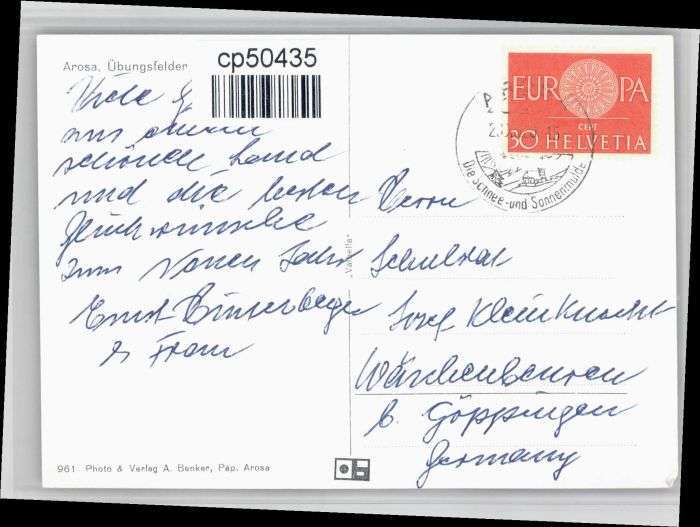 cp50435
Arosa, Übungsfelder
Viele G
aus einem
schönen Land
und die besten
Glückwünsche
zum Neuen Jahr
Ernst
& Frau
961 Photo & Verlag A. Benker, Pap. Arosa
EUROPA
CEPT
50 HELVETIA
Die Schnee- und Sonnenmulde
Herrn
Schulrat
Josef Kleinknecht
Wäschenbeuren
b. Göppingen
Germany